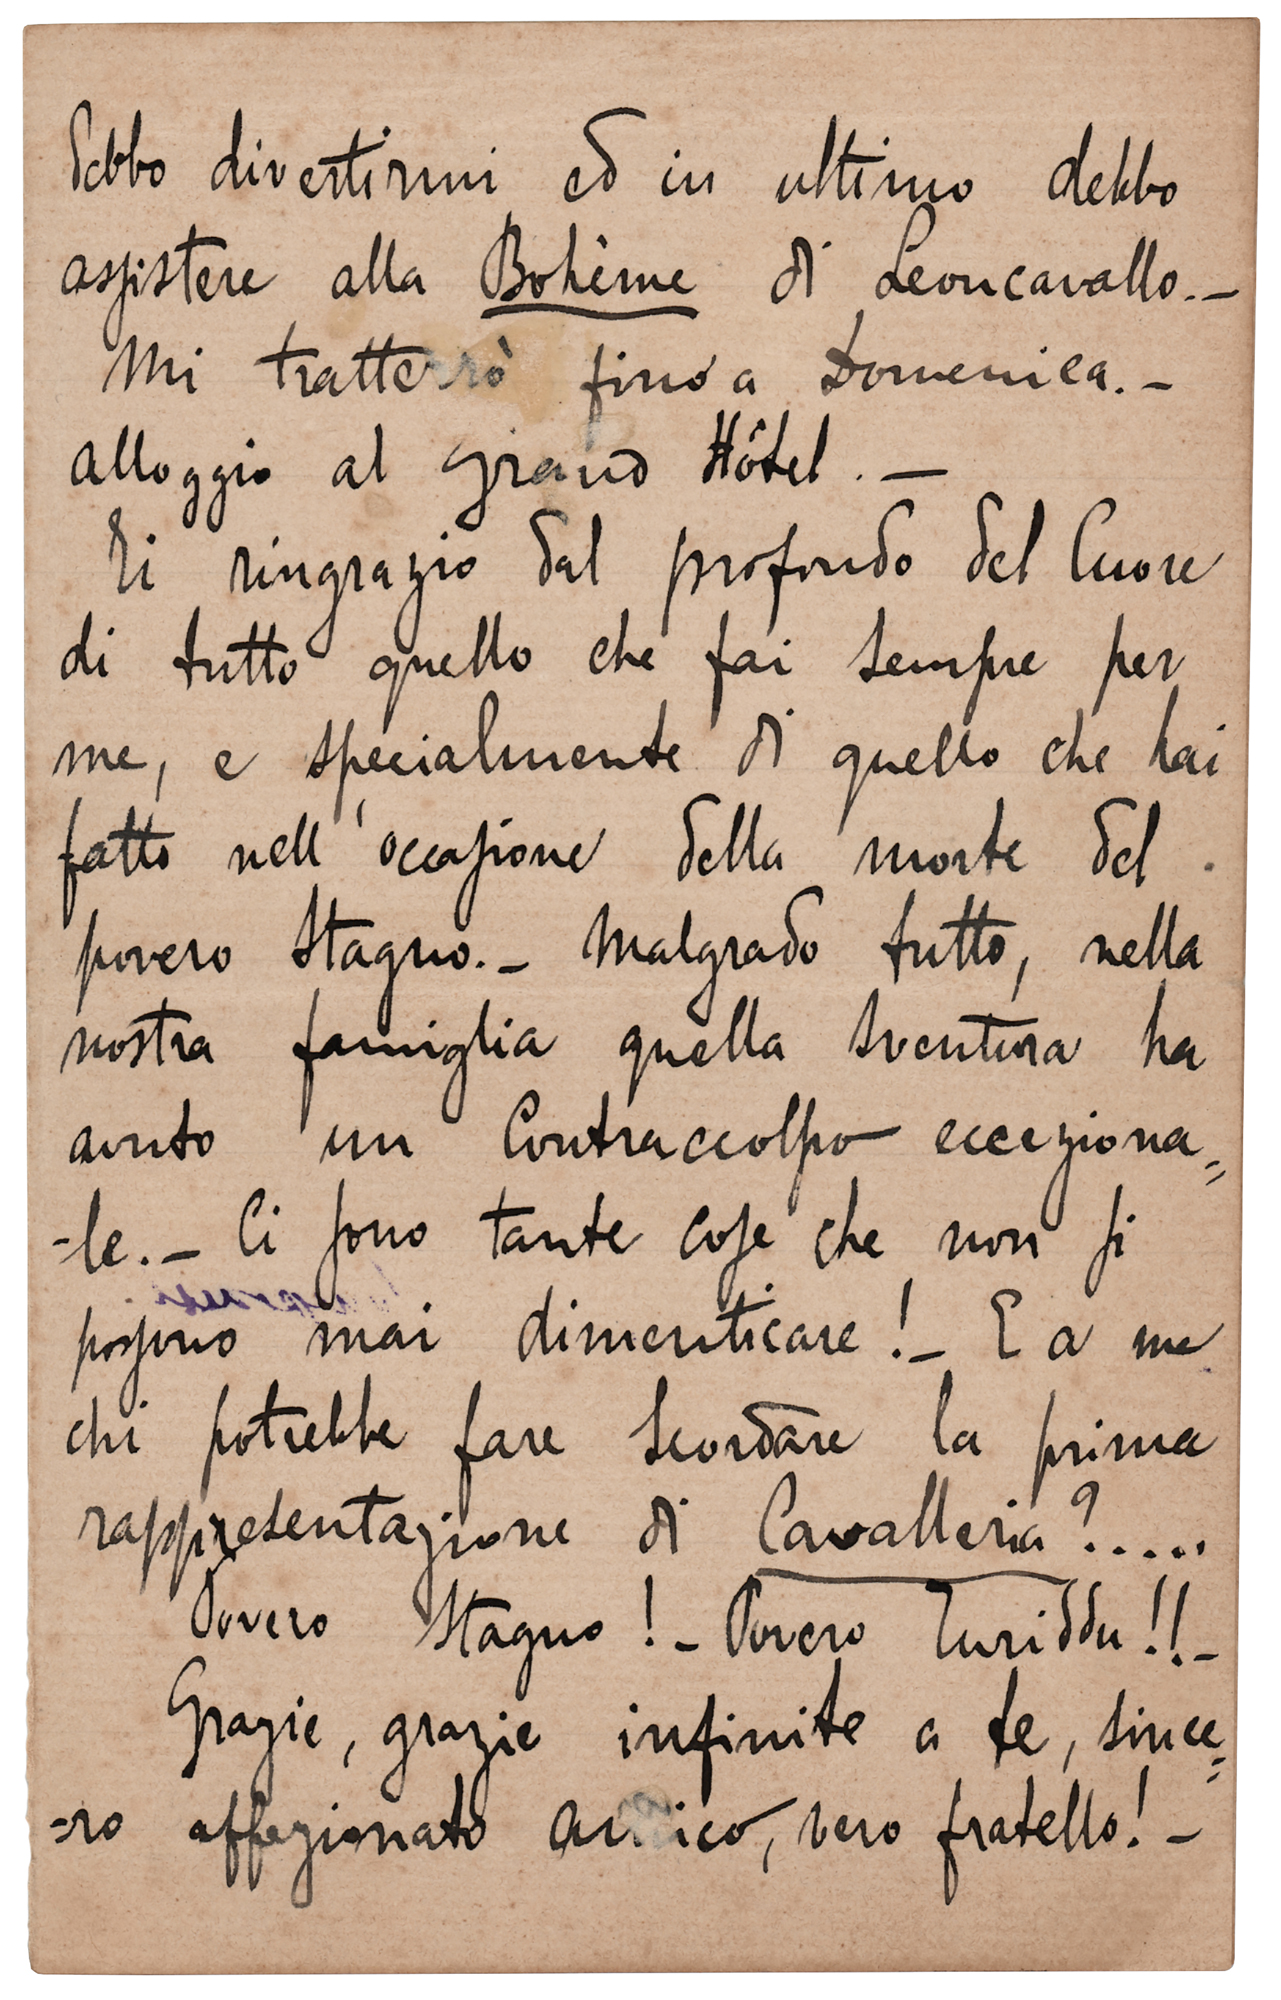 debbo divertirmi ed in ultimo debbo
assistere alla Bohème di Leoncavallo.–
Mi tratterrò fino a Domenica.–
alloggio al Grand Hôtel.–
Ti ringrazio dal profondo del Cuore
di tutto quello che fai sempre per
me, e specialmente di quello che hai
fatto nell'occasione della morte del
povero Stagno.– Malgrado tutto, nella
nostra famiglia quella sventura ha
avuto un Contraccolpo ecceziona=
-le.– Ci sono tante cose che non si
possono mai dimenticare!– E a me
chi potrebbe fare scordare la prima
rappresentazione di Cavalleria?.....
Povero Stagno!– Povero Turiddu!!–
Grazie, grazie infinite a te, since=
=ro affezionato amico, vero fratello!–